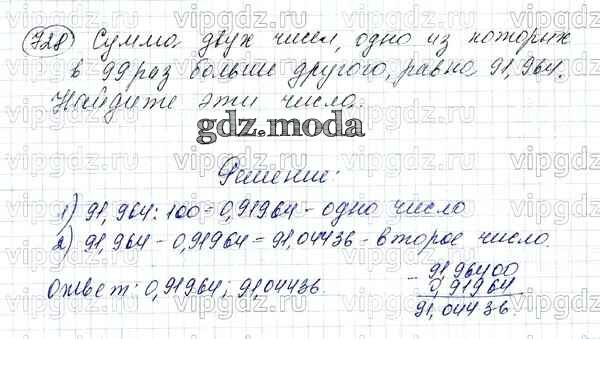 728 Сумма двух чисел, одно из которых
в 99 раз больше другого, равна 91,964.
Найдите эти числа.
gdz.moda
Решение:
1) 91,964 : 100 = 0,91964 - одно число
2) 91,964 - 0,91964 = 91,04436 - второе число.
Ответ: 0,91964; 91,04436.
- 91,96400
0,91964
91,04436